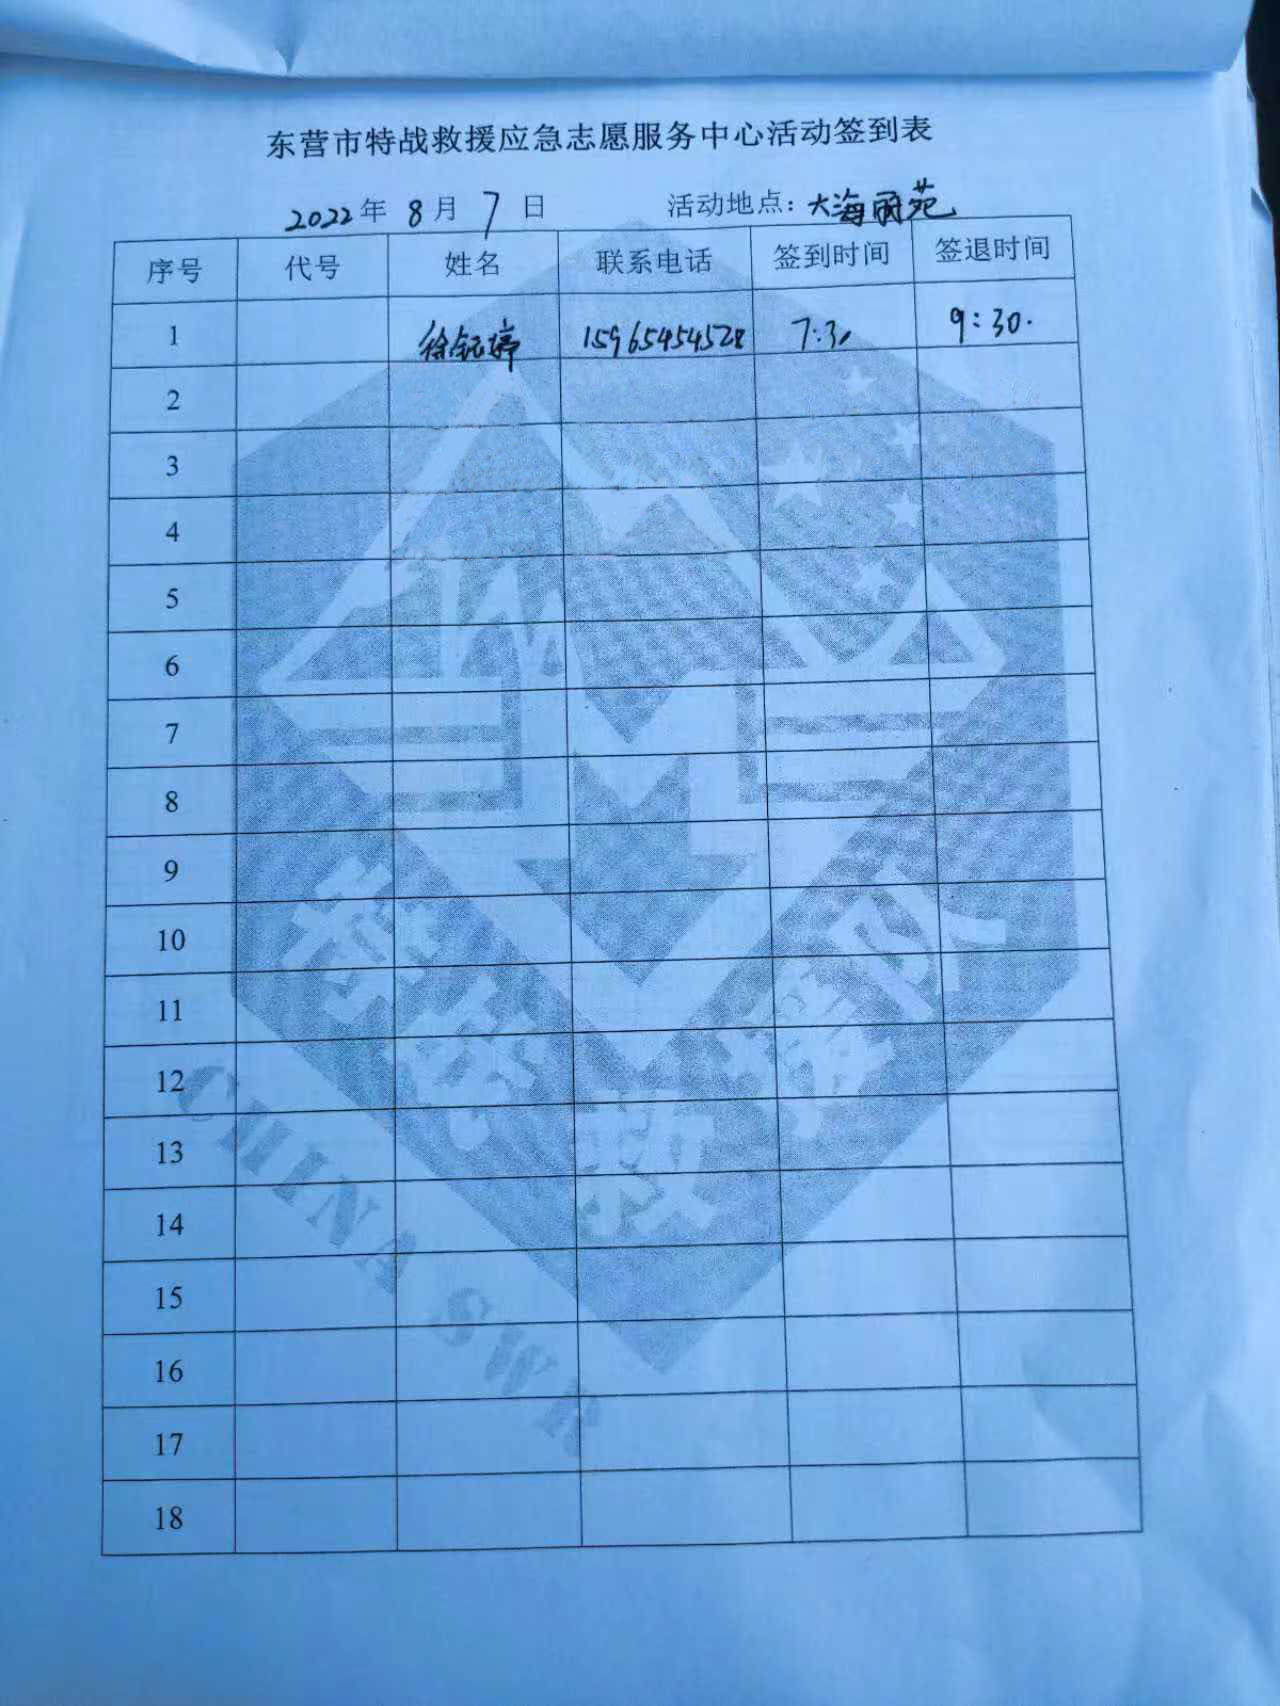 东营市特战救援应急志愿服务中心活动签到表
2022年 8月 7日 活动地点：大海丽苑
序号 代号 姓名 联系电话 签到时间 签退时间
1 徐钰婷 15965454528 7:30 9:30.
2
3
4
5
6
7
8
9
10
11
12
13
14
15
16
17
18
特战救援队
CHINA SWR